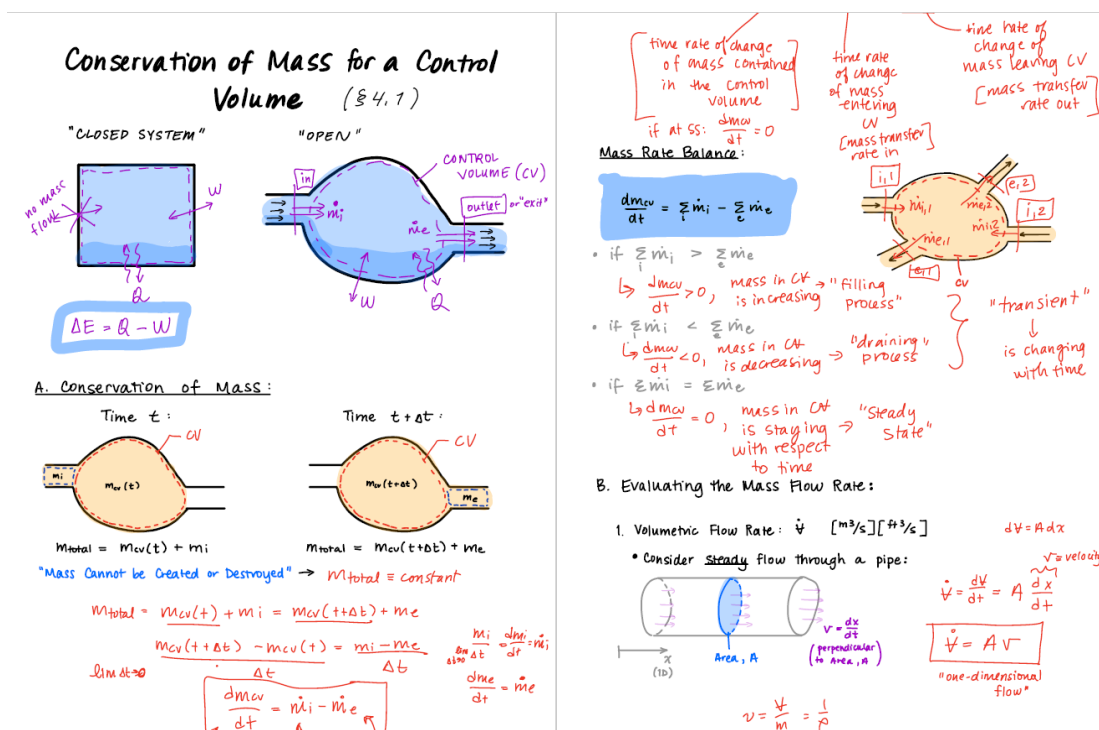 Conservation of Mass for a Control
Volume (§4.1)
"CLOSED SYSTEM"
"OPEN"
no mass
flow
W
Q
ΔE = Q - W
in
ṁi
CONTROL
VOLUME (CV)
outlet or "exit"
ṁe
W
Q
A. Conservation of Mass:
Time t:
CV
mi
mcv(t)
mtotal = mcv(t) + mi
Time t+Δt:
CV
mcv(t+Δt)
me
mtotal = mcv(t+Δt) + me
"Mass Cannot be Created or Destroyed" → mtotal ≡ constant
mtotal = mcv(t) + mi = mcv(t+Δt) + me
lim Δt→0
mcv(t+Δt) - mcv(t) = mi - me
Δt Δt
lim Δt→0 mi/Δt = dmi/dt = ṁi
dme/dt = ṁe
dmcv/dt = ṁi - ṁe
time rate of change
of mass contained
in the control
volume
if at SS: dmcv/dt = 0
time rate
of change
of mass
entering
CV
[mass transfer
rate in]
time rate of
change of
mass leaving CV
[mass transfer
rate out]
Mass Rate Balance:
dmcv/dt = Σi ṁi - Σe ṁe
i,1
ṁi,1
e,2
ṁe,2
i,2
ṁi,2
ṁe,1
e,1
CV
• if Σi ṁi > Σe ṁe
↳ dmcv/dt > 0, mass in CV → "filling
is increasing process"
• if Σ ṁi < Σe ṁe
↳ dmcv/dt < 0, mass in CV → "draining"
is decreasing process
"transient"
↓
is changing
with time
• if Σṁi = Σṁe
↳ dmcv/dt = 0, mass in CV → "Steady
is staying State"
with respect
to time
B. Evaluating the Mass Flow Rate:
1. Volumetric Flow Rate: V̶̇ [m³/s][ft³/s]
dV̶ = A dx
• Consider steady flow through a pipe:
x
(1D)
Area, A
v = dx/dt
(perpendicular
to Area, A)
v ≡ velocity
V̶̇ = dV̶/dt = A dx/dt
V̶̇ = A v
"one-dimensional
flow"
v = V̶/m = 1/ρ